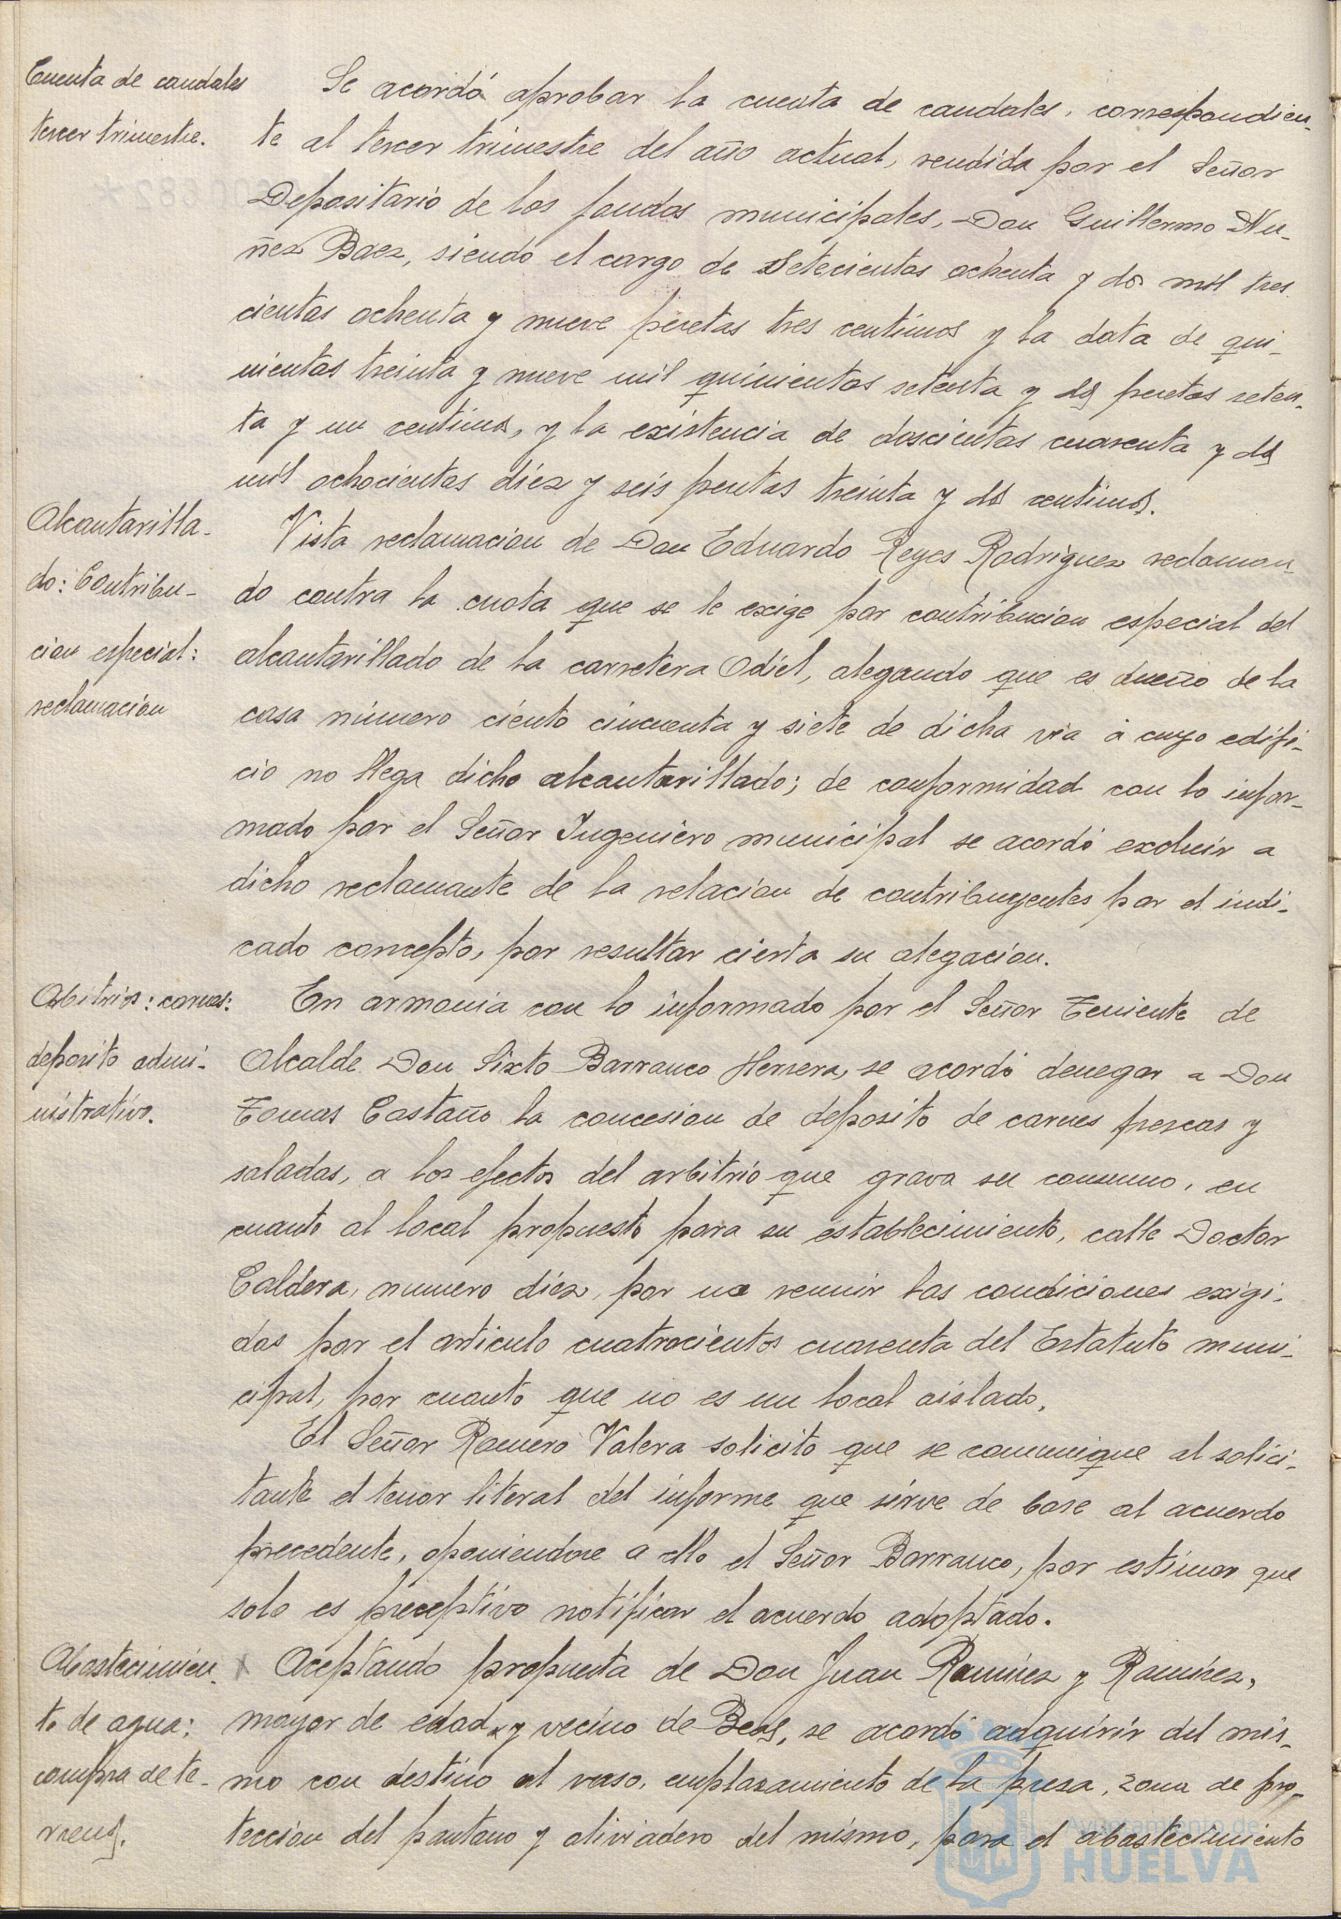 Cuenta de caudales
tercer trimestre.
Se acordó aprobar la cuenta de caudales, correspondien-
te al tercer trimestre del año actual, rendida por el Señor
Depositario de los fondos municipales, Don Guillermo Nu-
ñez Baez, siendo el cargo de setecientas ochenta y dos mil tres
cientas ochenta y nueve pesetas tres centimos y la data de qui-
nientas treinta y nueve mil quinientas setenta y dos pesetas seten-
ta y un centimos, y la existencia de doscientas cuarenta y dos
mil ochocientas diez y seis pesetas treinta y dos centimos.
Alcantarilla-
do: Contribu-
cion especial:
reclamación
Vista reclamacion de Don Eduardo Reyes Rodriguez reclaman-
do contra la cuota que se le exige por contribucion especial del
alcantarillado de la carretera Odiel, alegando que es dueño de la
casa número ciento cincuenta y siete de dicha via á cuyo edifi-
cio no llega dicho alcantarillado; de conformidad con lo infor-
mado por el Señor Ingeniero municipal se acordó excluir a
dicho reclamante de la relacion de contribuyentes por el indi-
cado concepto, por resultar cierta su alegacion.
Arbitrios: carnes:
deposito admi-
nistrativo.
En armonia con lo informado por el Señor Teniente de
Alcalde Don Sixto Barranco Herrera, se acordó denegar a Don
Tomas Castaño la concesion de deposito de carnes frescas y
saladas, a los efectos del arbitrio que grava su consumo, en
cuanto al local propuesto para su establecimiento, calle Doctor
Caldera, numero diez, por no reunir las condiciones exigi-
das por el articulo cuatrocientos cuarenta del Estatuto muni-
cipal, por cuanto que no es un local aislado.
El Señor Romero Valera solicito que se comunique al solici-
tante el tenor literal del informe que sirve de base al acuerdo
precedente, oponiendose a ello el Señor Barranco, por estimar que
solo es preceptivo notificar el acuerdo adoptado.
Abastecimien-
to de agua:
compra de te-
rrenos.
Aceptando propuesta de Don Juan Ramirez y Ramirez,
mayor de edad y vecino de Beas, se acordó adquirir del mis-
mo con destino al vaso, emplazamiento de la presa, zona de pro-
teccion del pantano y aliviadero del mismo, para el abastecimiento
Ayuntamiento de
HUELVA